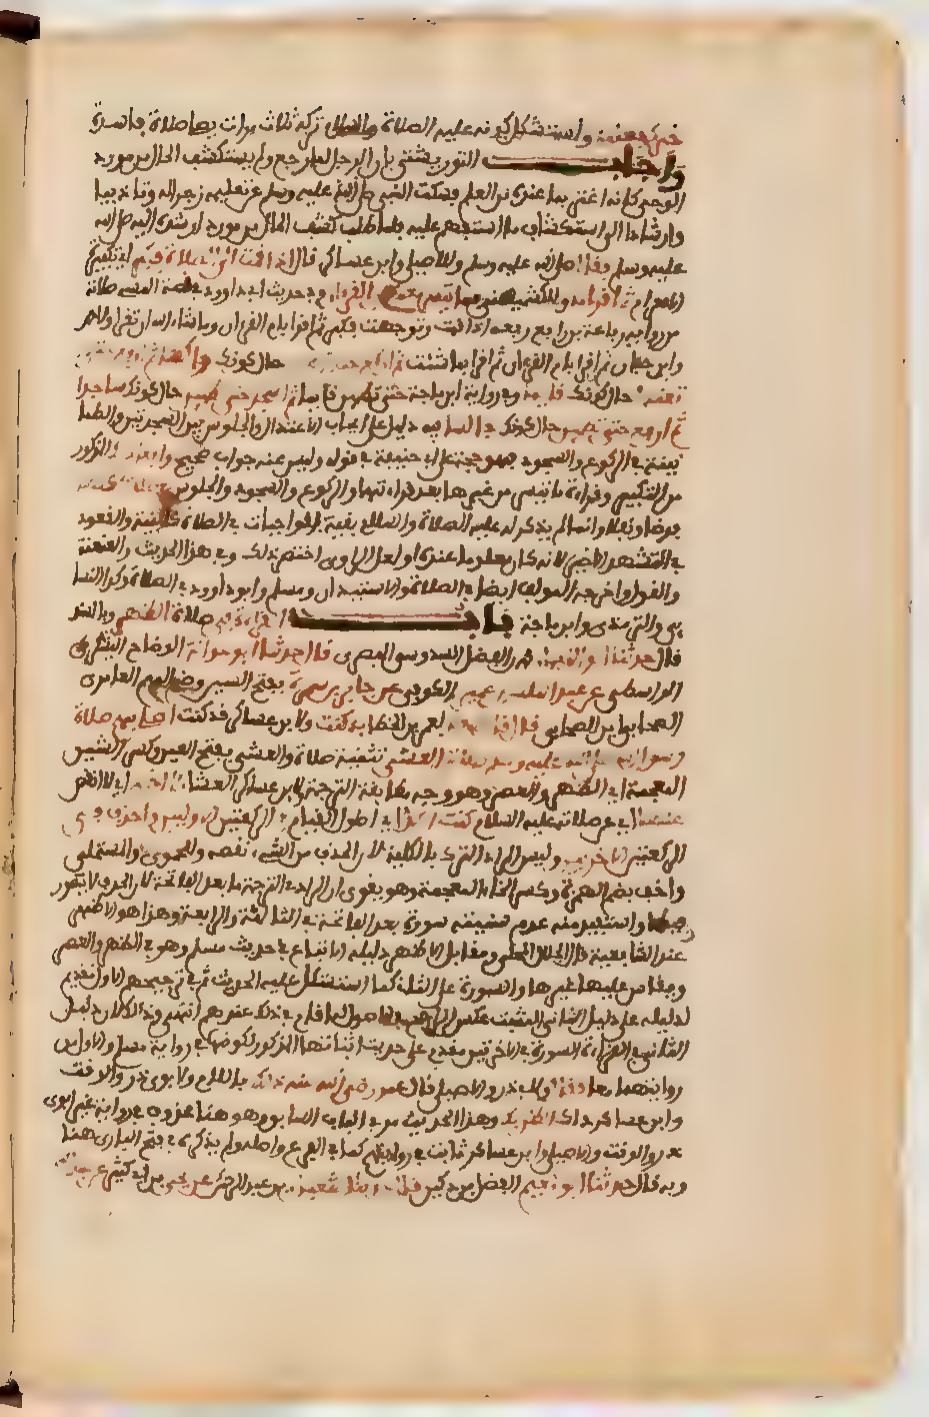 واستشكل كونه عليه الصلاة والسلام تركه ثلاث مرات يصلي صلاة فاسدة
وأجاب التوربشتي بان الرجل لما رجع ولم يستكشف الحال من مورد
الوحي كانه اغتر بما عنده من العلم فسكت النبي صلى الله عليه وسلم عن تعليمه زجرا له وتاديبا
وارشادا الى استكشاف ما استبهم عليه فلما طلب كشف الحال من مورده ارشده اليه صلى الله
عليه وسلم فقال صلى الله عليه وسلم وللاصيلي وابن عساكر قال اذا قمت الى الصلاة فكبر اي تكبيرة
الاحرام ثم اقرا وللكشميهني ما تيسر من القران وفي حديث ابي داوود في قصة المسي صلاته
من رواية رفاعة بن رافع رفعه اذا قمت وتوجهت فكبر ثم اقرا بام القران وما شاء الله ان تقرا ولاحمد
وابن حبان ثم اقرا بام القران ثم اقرا بما شئت ثم اركع حتى حال كونك راكعا ثم ارفع حتى
تعتدل حال كونك قائما وفي رواية ابن ماجة حتى تطمئن قائما ثم اسجد حتى تطمئن حال كونك ساجدا
ثم ارفع حتى تطمئن حال كونك جالسا فيه دليل على ايجاب الاعتدال والجلوس بين السجدتين والطما
نينة في الركوع والسجود فهو حجة على ابي حنيفة في قوله وليس عنه جواب صحيح وافعل ذلك المذكور
من التكبير وقراءة ما تيسر من غيرها بعد قراءتها والركوع والسجود والجلوس في صلاتك كلها
فرضا ونفلا وانما لم يذكر له عليه الصلاة والسلام بقية الواجبات في الصلاة كالنية والقعود
في التشهد الاخير لانه كان معلوما عنده او لعل الراوي اختصر ذلك وفي هذا الحديث والعنعنة
والقول واخرجه المولف ايضا في الصلاة والاستيذان ومسلم وابو داوود في الصلاة وكذا النسا
ئي والترمذي وابن ماجة باب القراءة في صلاة الظهر وبالسند
قال حدثنا ابو النعمان محمد بن الفضل السدوسي البصري قال حدثنا ابو عوانة الوضاح اليشكري
الواسطي عن عبد الملك بن عمير الكوفي عن جابر بن سمرة بفتح السين وضم الميم العامري
الصحابي ابن الصحابي قال قال سعد لعمر بن الخطاب كنت ولابن عساكر قد كنت اصلي بهم صلاة
رسول الله صلى الله عليه وسلم صلاتي العشي تثنية صلاة والعشي بفتح العين وكسر الشين
المعجمة اي الظهر والعصر وهو وجه مطابقة الترجمة ولابن عساكر العشاء لا اخرم اي لا انقص
عنها اي عن صلاته عليه السلام كنت اركد اي اطول القيام في الركعتين الاوليين واحذف في
الركعتين الاخريين وليس المراد الترك بالكلية لان الحذف من الشيء نقصه وللحموي والمستملي
واخف بضم الهمزة وكسر الخاء المعجمة وهو يقوي ان المراد في الترجمة ما بعد الفاتحة لان الحذف لا يتصور
فيها واستفيد منه عدم سنية سورة بعد الفاتحة في الثالثة والرابعة وهذا هو الاظهر
عند الشافعية قال الجلال المحلي ومقابل الاظهر دليله الاتباع في حديث مسلم وهو في الظهر والعصر
ويقاس عليهما غيرهما والسورة على الثلث كما استشكل عليه الحديث ثم في ترجيحهم الاول تقديم
لدليله على دليل الثاني المثبت عكس الراجح في الاصول لما قام في ذلك عندهم انتهى وفي الكلام دليل
الثاني القراءة السورة في الاخرتين مقدم على حديث اثباتها المذكور لكونها في رواية مسلم والاول من
روايتهما معا وقال ولابي ذر والاصيلي قال عمر رضي الله عنه ذلك باللام ولابوي ذر والوقت
وابن عساكر ذاك الظن بك وهذا الحديث مر في الباب السابق وهو هنا محذوف في رواية غير ابوي
ذر والوقت والاصيلي وابن عساكر ثابت في روايتهم كما في الفرع واصله ولم يذكره في فتح الباري هنا
وبه قال حدثنا ابو نعيم الفضل بن دكين قال حدثنا شيبان بن عبد الرحمن عن يحيى بن ابي كثير عن